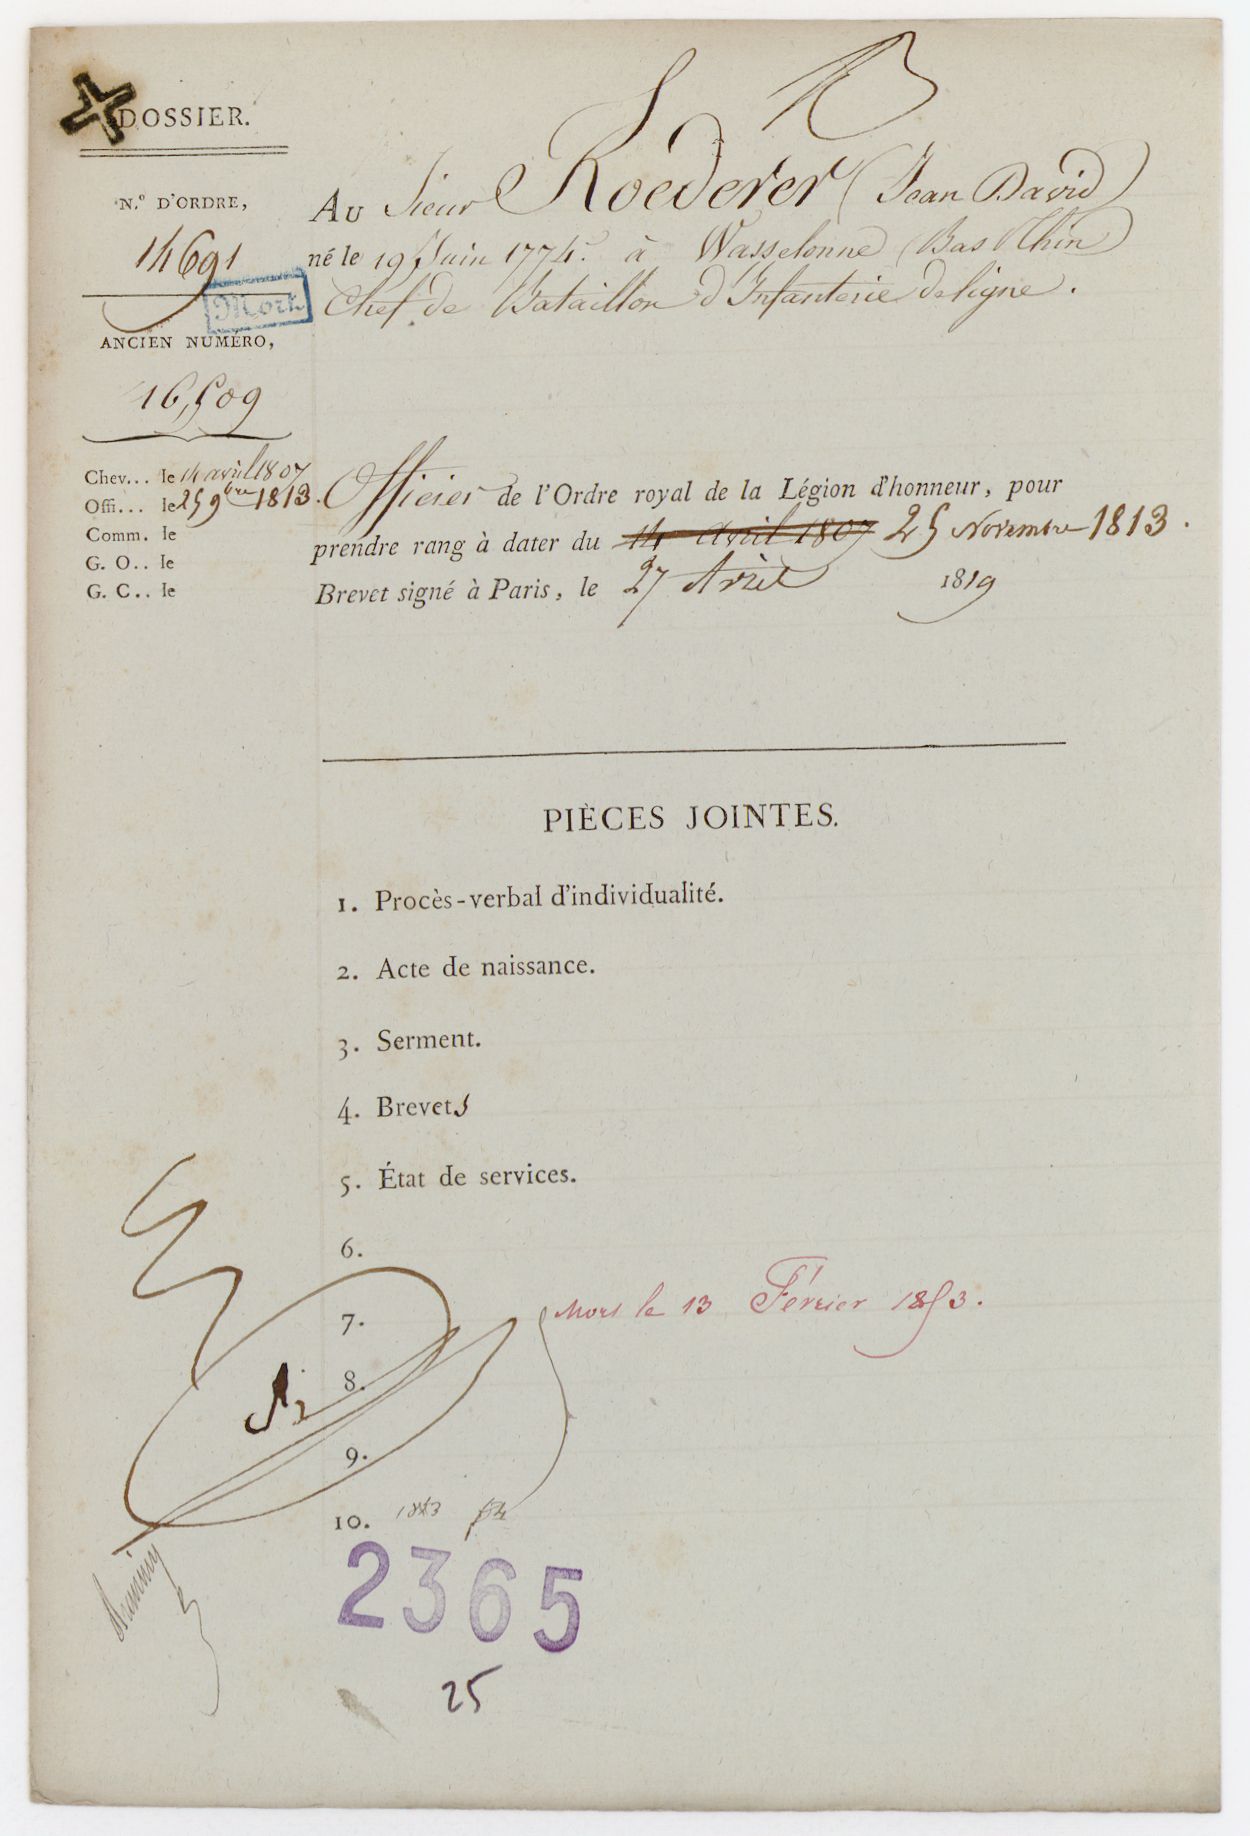 DOSSIER.
N.º D'ORDRE,
14691
Mort
ANCIEN NUMÉRO,
16,509
Chev... le 14 avril 1807
Offi... le 25 9bre 1813.
Comm. le
G. O.. le
G. C.. le
Au Sieur Roederer (Jean David)
né le 19 Juin 1774. à Wasselonne (Bas Rhin)
Chef de Bataillon d'Infanterie de ligne.
Officier de l'Ordre royal de la Légion d'honneur, pour
prendre rang à dater du 14 avril 1807 25 Novembre 1813.
Brevet signé à Paris, le 27 Avril 1819
PIÈCES JOINTES.
1. Procès-verbal d'individualité.
2. Acte de naissance.
3. Serment.
4. Brevets
5. État de services.
6.
7.
Mort le 13 Février 1853.
8.
9.
10.
2365
25